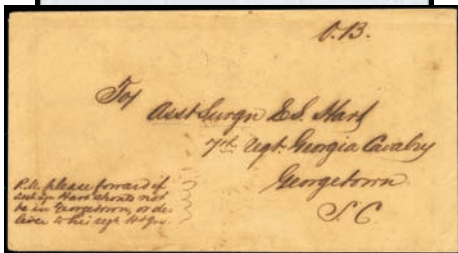 O.B.
To/
Asst Surgn E.S. Hart
7th Regt. Georgia Cavalry
Georgetown
S.C.
P.M. please forward if
Asst Sgn Hart should not
be in Georgetown, or de-
liver to his regt